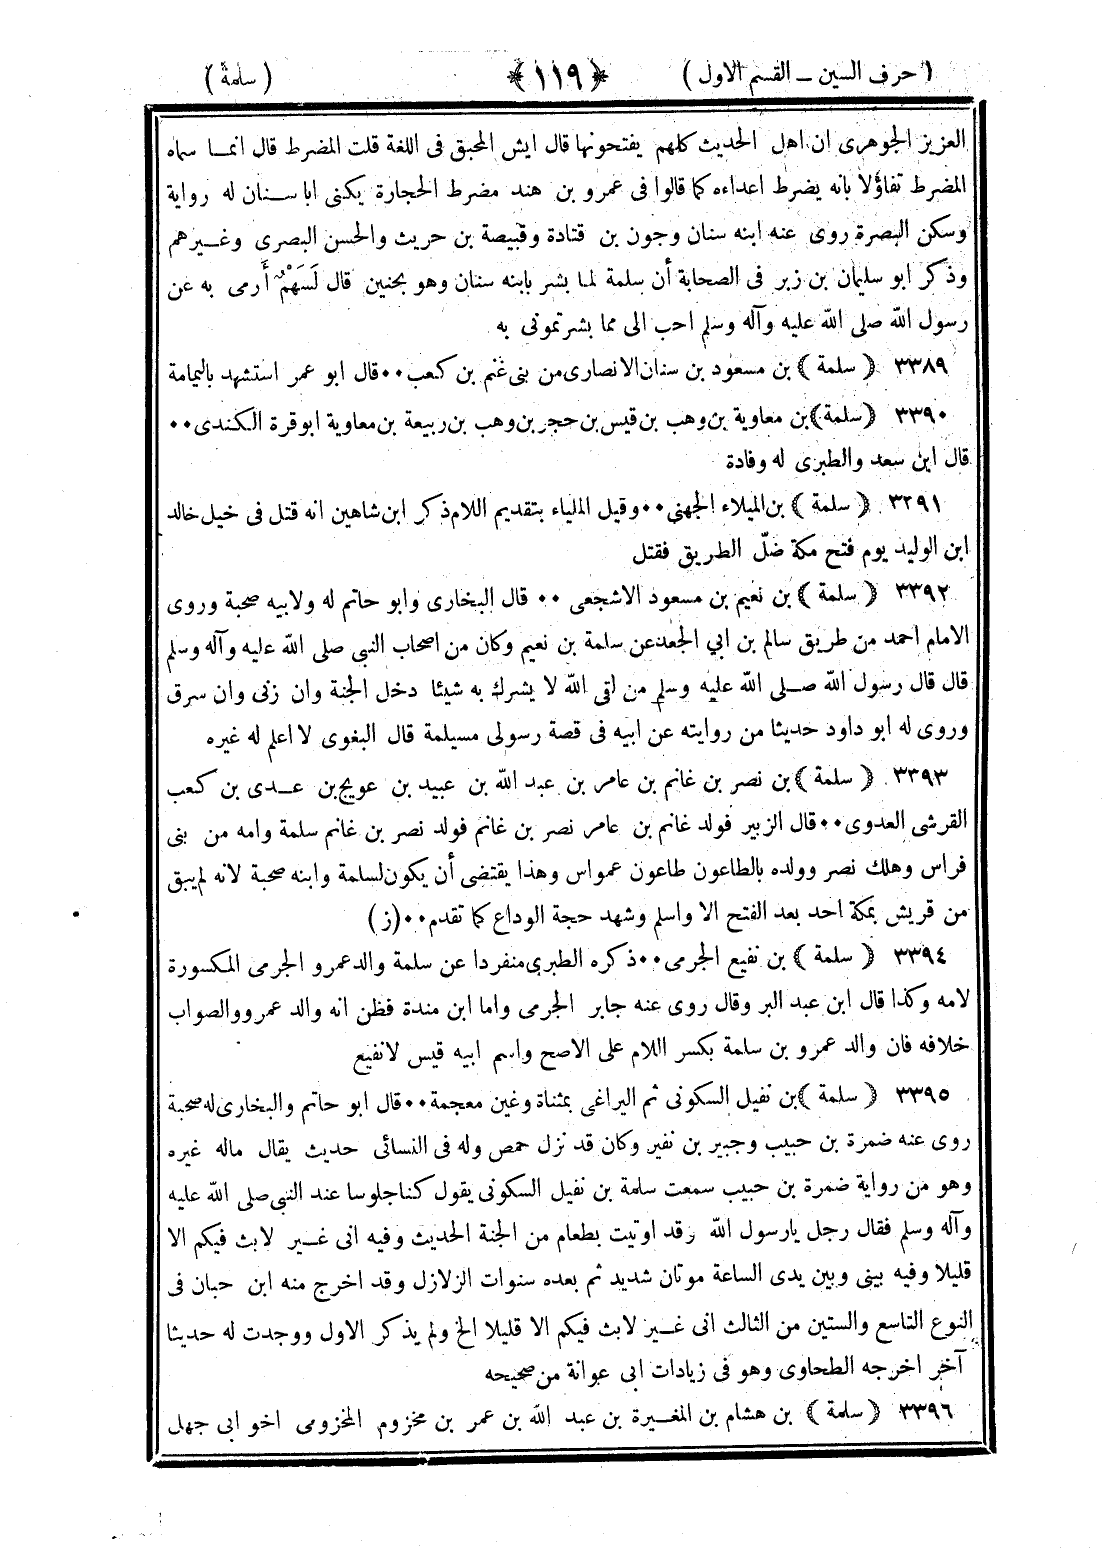 (حرف السين ــ القسم الاول) ﴿١١٩﴾ (سلمة)
العزيز الجوهرى ان اهل الحديث كلهم يفتحونها قال ايش المحبق فى اللغة قلت المضرط قال انمـا سماه
المضرط تفاؤلا بانه يضرط اعداءه كما قالوا فى عمرو بن هند مضرط الحجارة يكنى اباسـنان له رواية
وسكن البصرة روى عنه ابنه سنان وجون بن قتادة وقبيصة بن حريث والحسن البصرى وغـيرهم
وذكر ابو سليمان بن زبر فى الصحابة أن سلمة لما بشر بابنه سنان وهو بحنين قال لَسَهْمٌ أَرمى به عن
رسول الله صلى الله عليه وآله وسلم احب الى مما بشرتمونى به
٣٣٨٩ ﴿سلمة﴾ بن مسعود بن سنان الانصارى من بنى غنم بن كعب٠٠قال ابو عمر استشهد باليمامة
٣٣٩٠ ﴿سلمة﴾ بن معاوية بن وهب بن قيس بن حجر بن وهب بن ربيعة بن معاوية ابوقرة الكندى٠٠
قال ابن سعد والطبرى له وفادة
٣٢٩١ ﴿سلمة﴾ بن الميلاء الجهني٠٠وقيل الملياء بتقديم اللام ذكر ابن شاهين انه قتل فى خيل خالد
ابن الوليد يوم فتح مكة ضلّ الطريق فقتل
٣٣٩٢ ﴿سلمة﴾ بن نعيم بن مسعود الاشجعى ٠٠ قال البخارى وابو حاتم له ولابيه صحبة وروى
الامام احمد من طريق سالم بن ابي الجعد عن سلمة بن نعيم وكان من اصحاب النبى صلى الله عليه وآله وسلم
قال قال رسول الله صـلى الله عليه وسلم من لقى الله لا يشرك به شيئا دخل الجنة وان زنى وان سرق
وروى له ابو داود حديثا من روايته عن ابيه فى قصة رسولى مسيلمة قال البغوى لا اعلم له غيره
٣٣٩٣ ﴿سلمة﴾ بن نصر بن غانم بن عامر بن عبد الله بن عبيد بن عويج بن عـدى بن كعب
القرشى العدوى٠٠قال الزبير فولد غانم بن عامر نصر بن غانم فولد نصر بن غانم سلمة وامه من بنى
فراس وهلك نصر وولده بالطاعون طاعون عمواس وهذا يقتضى أن يكون لسلمة وابنه صحبة لانه لم يبق
من قريش بمكة احد بعد الفتح الا واسلم وشهد حجة الوداع كما تقدم٠٠(ز)
٣٣٩٤ ﴿سلمة﴾ بن نفيع الجرمى٠٠ذكره الطبرى منفردا عن سلمة والد عمرو الجرمى المكسورة
لامه وكذا قال ابن عبد البر وقال روى عنه جابر الجرمى واما ابن مندة فظن انه والد عمرو والصواب
خلافه فان والد عمرو بن سلمة بكسر اللام على الاصح واسم ابيه قيس لا نفيع
٣٣٩٥ ﴿سلمة﴾ بن نفيل السكونى ثم اليراغى بمثناة وغين معجمة٠٠قال ابو حاتم والبخارى له صحبة
روى عنه ضمرة بن حبيب وجبير بن نفير وكان قد نزل حمص وله فى النسائى حديث يقال ماله غيره
وهو من رواية ضمرة بن حبيب سمعت سلمة بن نفيل السكونى يقول كنا جلوسا عند النبى صلى الله عليه
وآله وسلم فقال رجل يارسول الله وقد اوتيت بطعام من الجنة الحديث وفيه انى غـير لابث فيكم الا
قليلا وفيه بينى وبين يدى الساعة موتان شديد ثم بعده سنوات الزلازل وقد اخرج منه ابن حبان فى
النوع التاسع والستين من الثالث انى غـير لابث فيكم الا قليلا الخ ولم يذكر الاول ووجدت له حديثا
آخر اخرجه الطحاوى وهو فى زيادات ابى عوانة من صحيحه
٣٣٩٦ ﴿سلمة﴾ بن هشام بن المغـيرة بن عبد الله بن عمر بن مخزوم المخزومى اخو ابى جهل